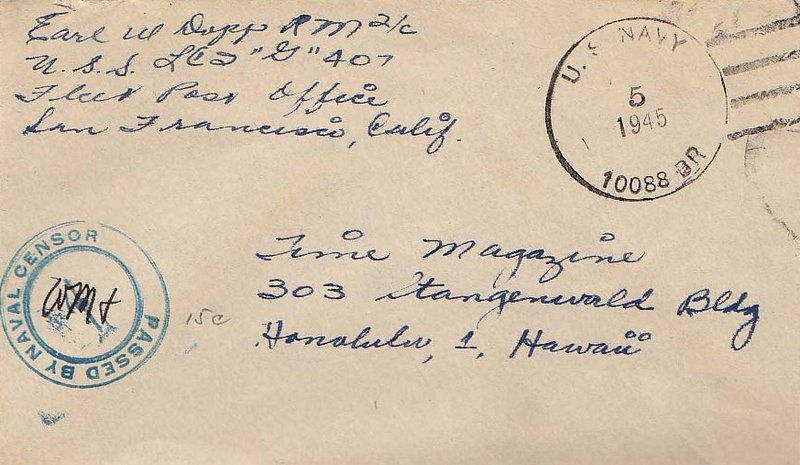 Earl W Dopp RM 2/c
U.S.S. LCS "G" 407
Fleet Post Office
San Francisco, Calif.
U.S NAVY
5
1945
10088 BR
PASSED BY NAVAL CENSOR
15c
Time Magazine
303 Stangenwald Bldg
Honolulu, 1, Hawaii